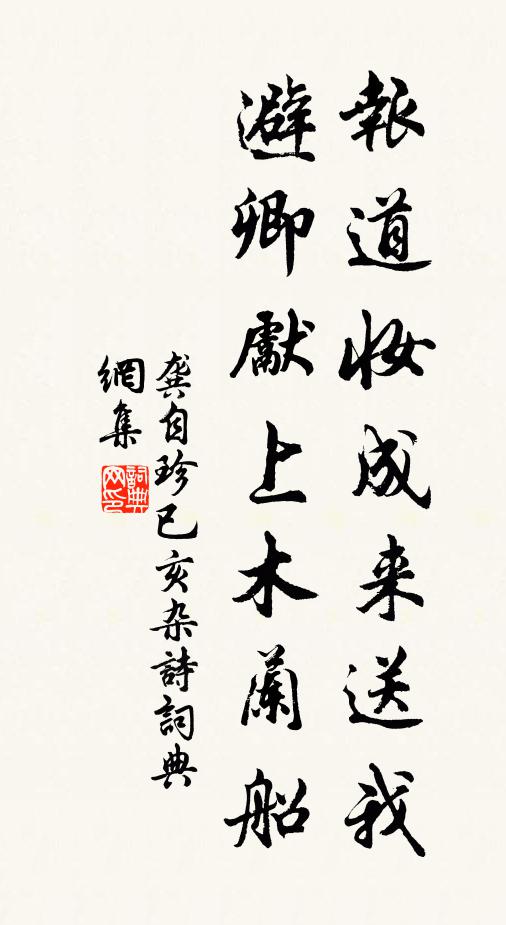 報道妝成来送我
避卿獻上木蘭船
龔自珍已亥杂詩詞典
網集
詞典網印